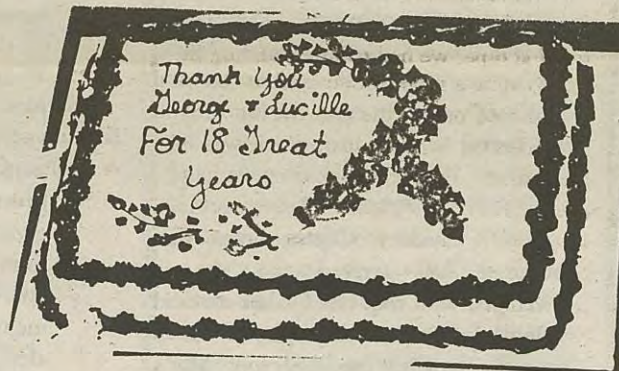 Thank you
George & Lucille
For 18 Great
years